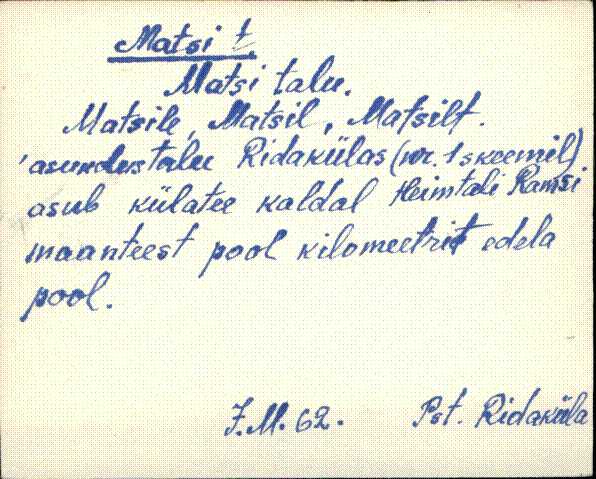 Matsi t.
Matsi talu.
Matsile, Matsil, Matsilt.
asundustalu Ridakülas (nr. 1 skeemil)
asub külatee kaldal Heimtali Ramsi
maanteest pool kilomeetrit edela
pool.
J.M. 62. Pst. Ridaküla